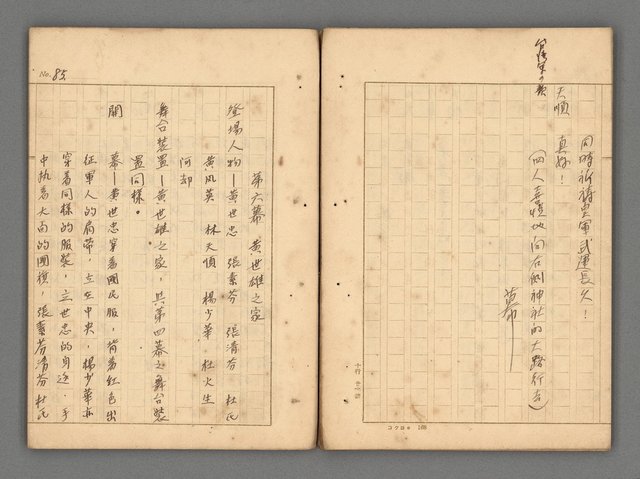 同時祈禱皇軍武運長久！
天順　真好！
（四人喜憤地向右側神社的大路行去）
幕
コクヨ
168
No. 85
第六幕　黄世雄之家
登場人物—黄世忠　張素芬　張清芬　杜氏
黄鳳英　林天順　楊少華　杜火生
阿却
舞台裝置—黄世雄之家，與第四幕之舞台裝
置同樣。
開　幕—黄世忠穿着國民服，背着紅色出
征軍人的肩帶，立在中央，楊少華亦
穿着同樣的服裝，立世忠的身邊，手
中执着大面的國旗，張素芬清芬杜氏